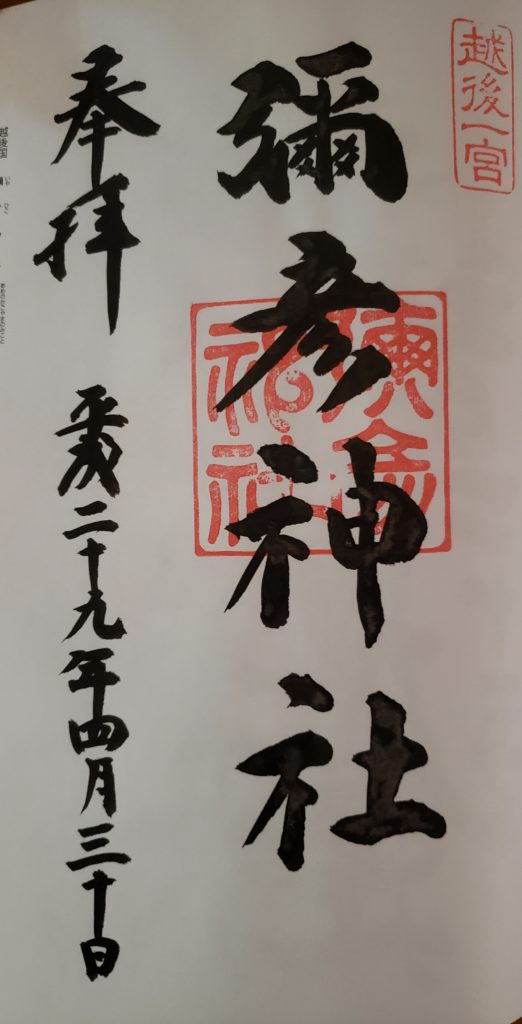 越後一宮
彌彦神社
奉拝
平成二十九年四月三十日
越後国